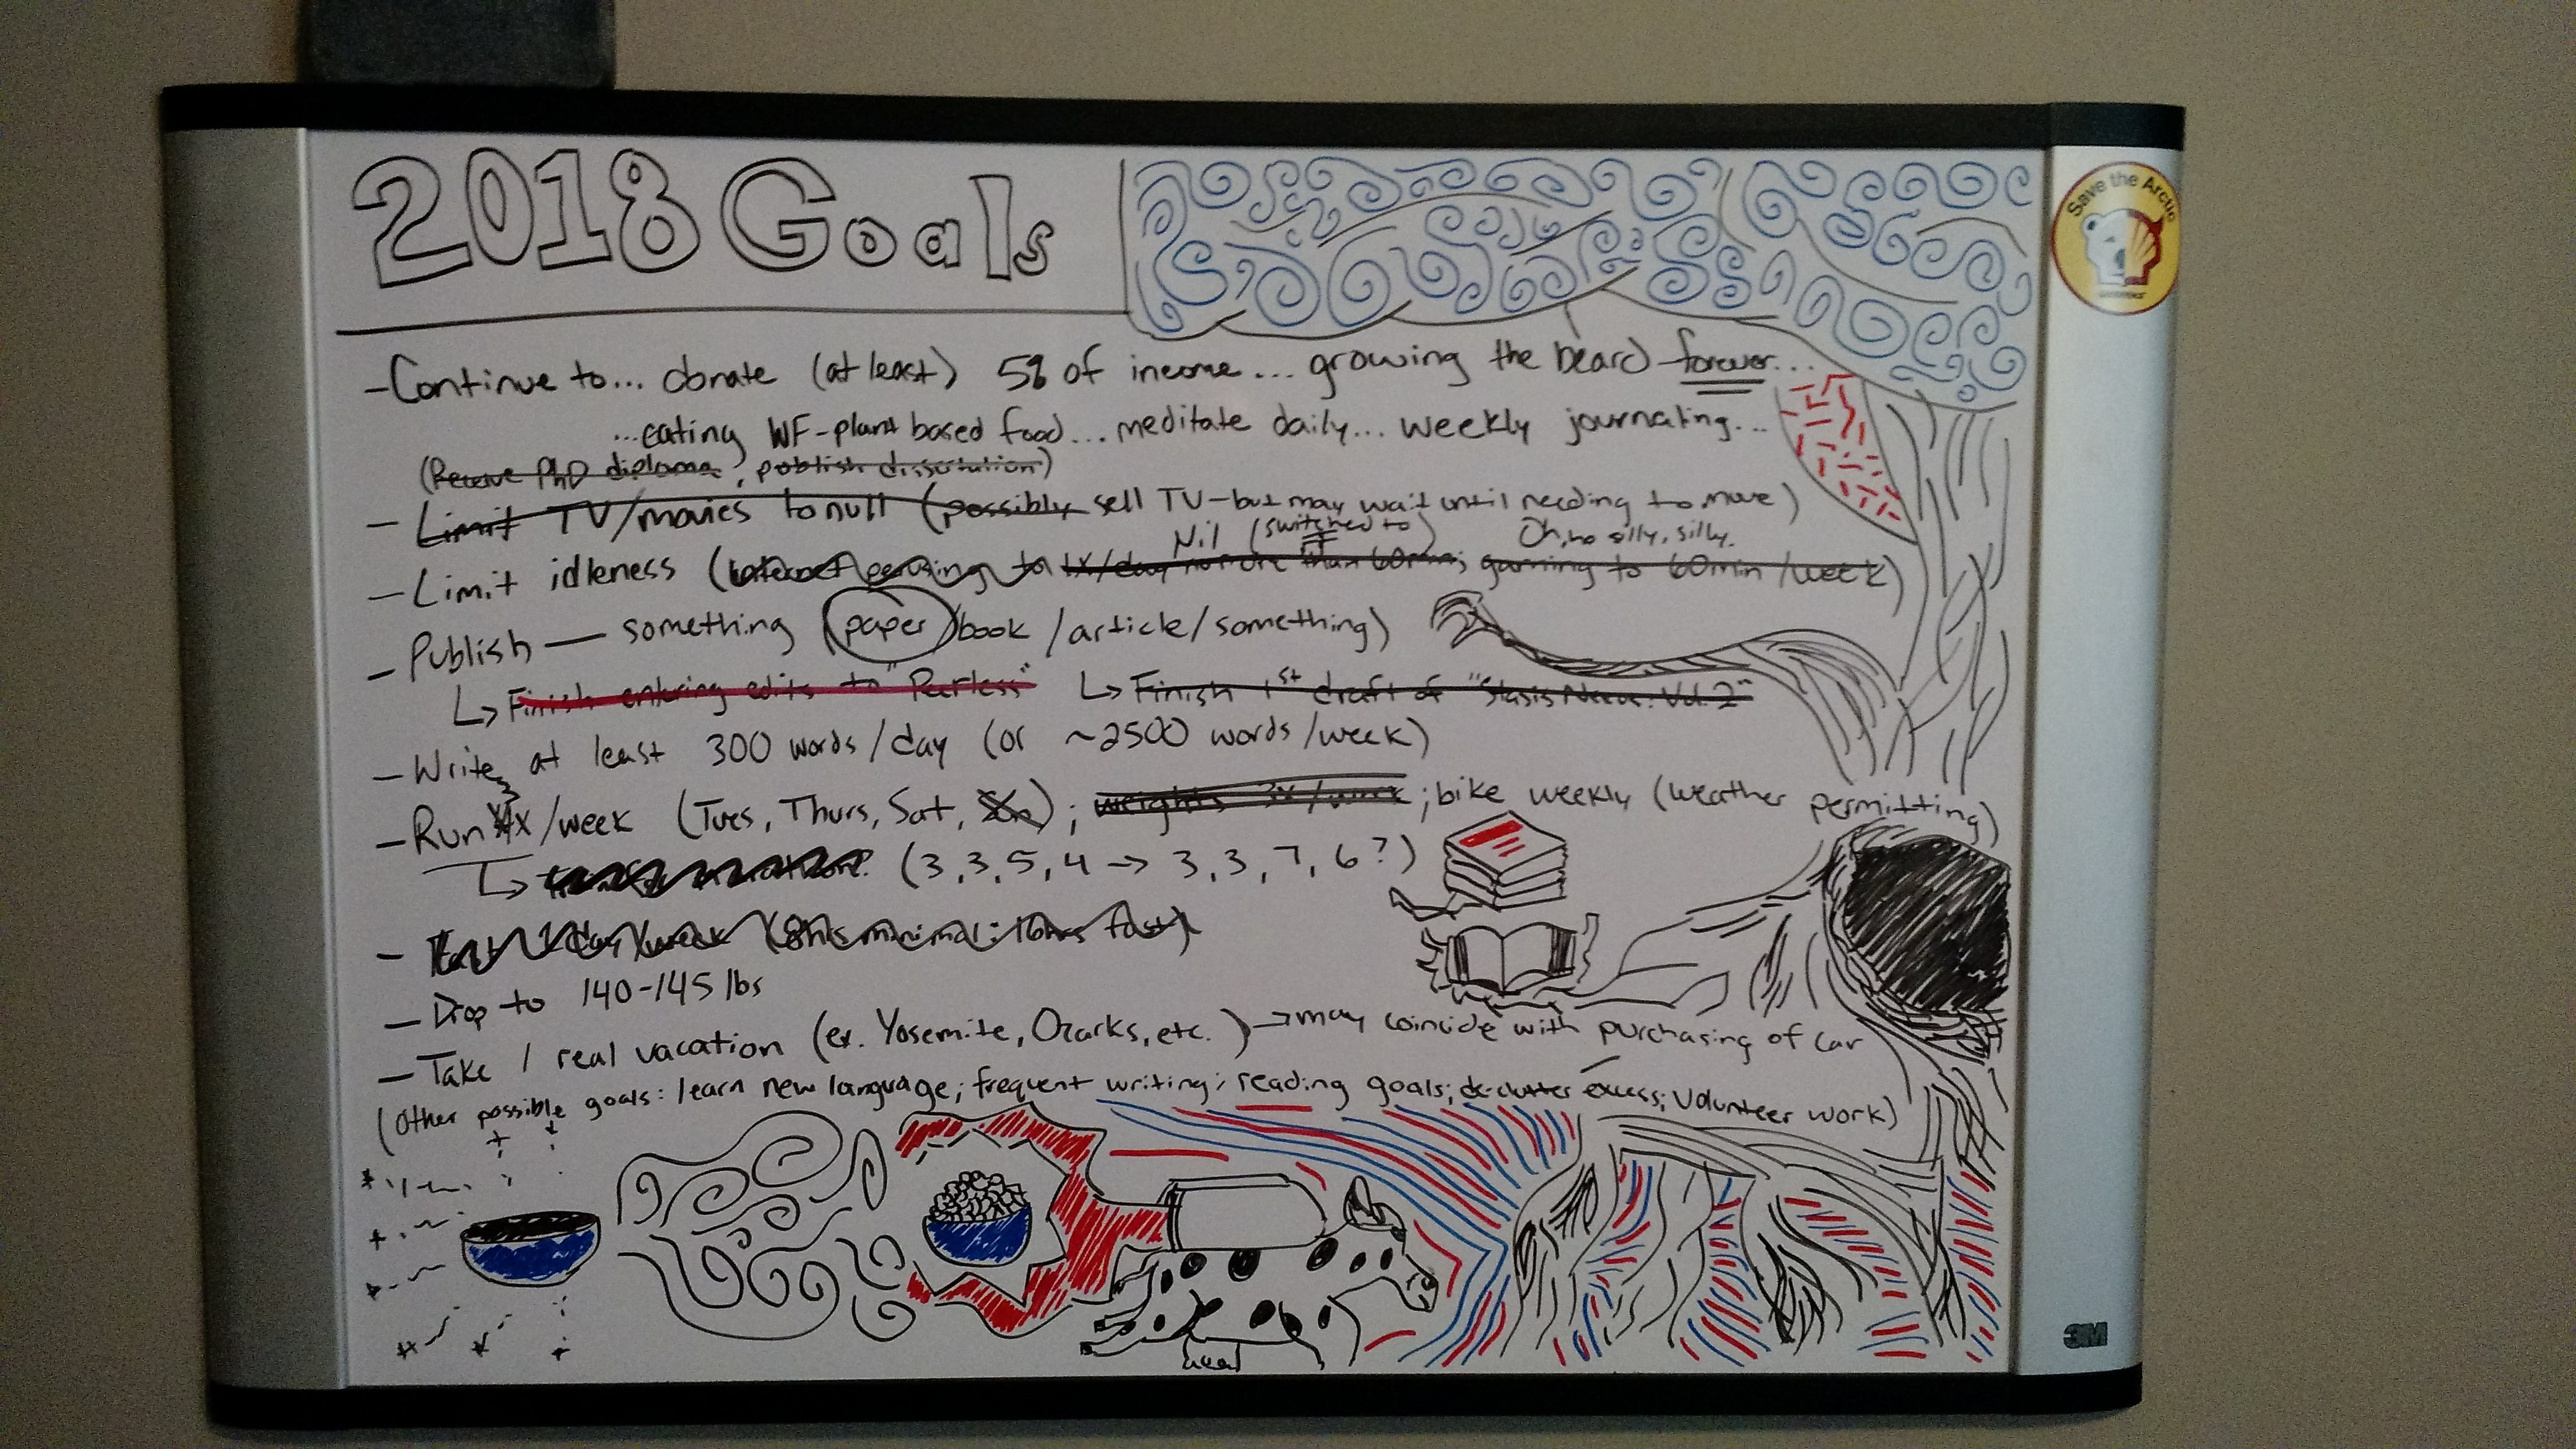 2018 Goals
Save the Arctic
- Continue to... donate (at least) 5% of income... growing the beard forever...
...eating WF-plant based food... meditate daily... weekly journaling...
(Receive PhD diploma, publish dissertation)
- Limit TV/movies to null (possibly sell TV - but may wait until needing to move)
Nil (switched to it) Oh, ho silly, silly.
- Limit idleness (internet perusing to 1x/day no more than 60min; gaming to 60min/week)
- Publish — something (paper/book/article/something)
↳ Finish entering edits to "Peerless" ↳ Finish 1st draft of "Stasis Nexus: Vol. 2"
- Write at least 300 words/day (or ~2500 words/week)
3
- Run 4x/week (Tues, Thurs, Sat, Sun); weights 3x/week; bike weekly (weather permitting)
↳ (3,3,5,4 → 3,3,7,6?)
- 1 day/week (8hrs minimal: 16hrs fast)
- Drop to 140-145 lbs
- Take 1 real vacation (ex. Yosemite, Ozarks, etc.) → may coincide with purchasing of car
(Other possible goals: learn new language; frequent writing; reading goals; de-clutter excess; volunteer work)
3M